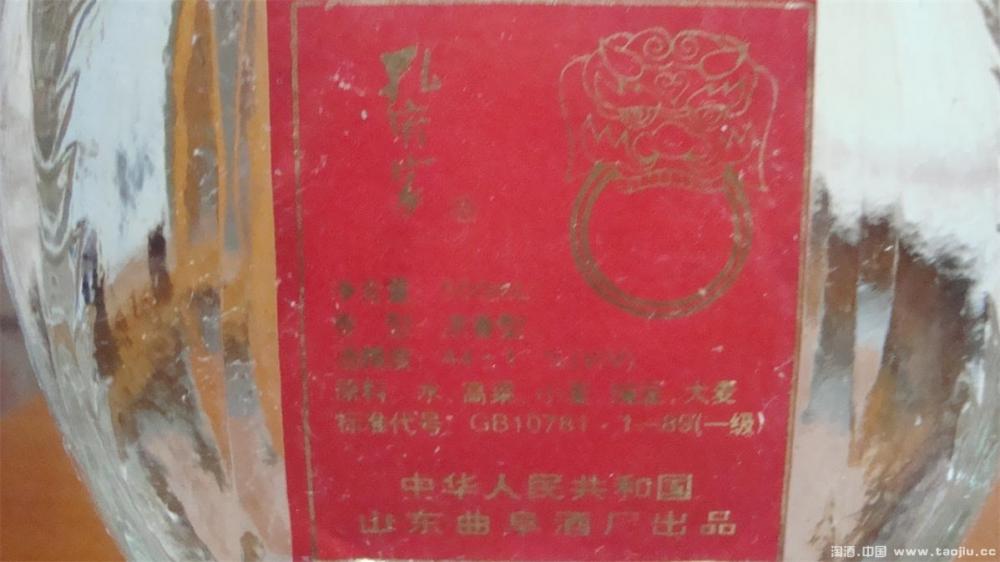 孔府家
净含量: 500ML
香 型: 浓香型
酒精度: 44±1
原料: 水、高粱、小麦、豌豆、大麦
标准代号: GB10781·1-89(一级)
中华人民共和国
山东曲阜酒厂出品
淘酒.中国 www.taojiu.cc